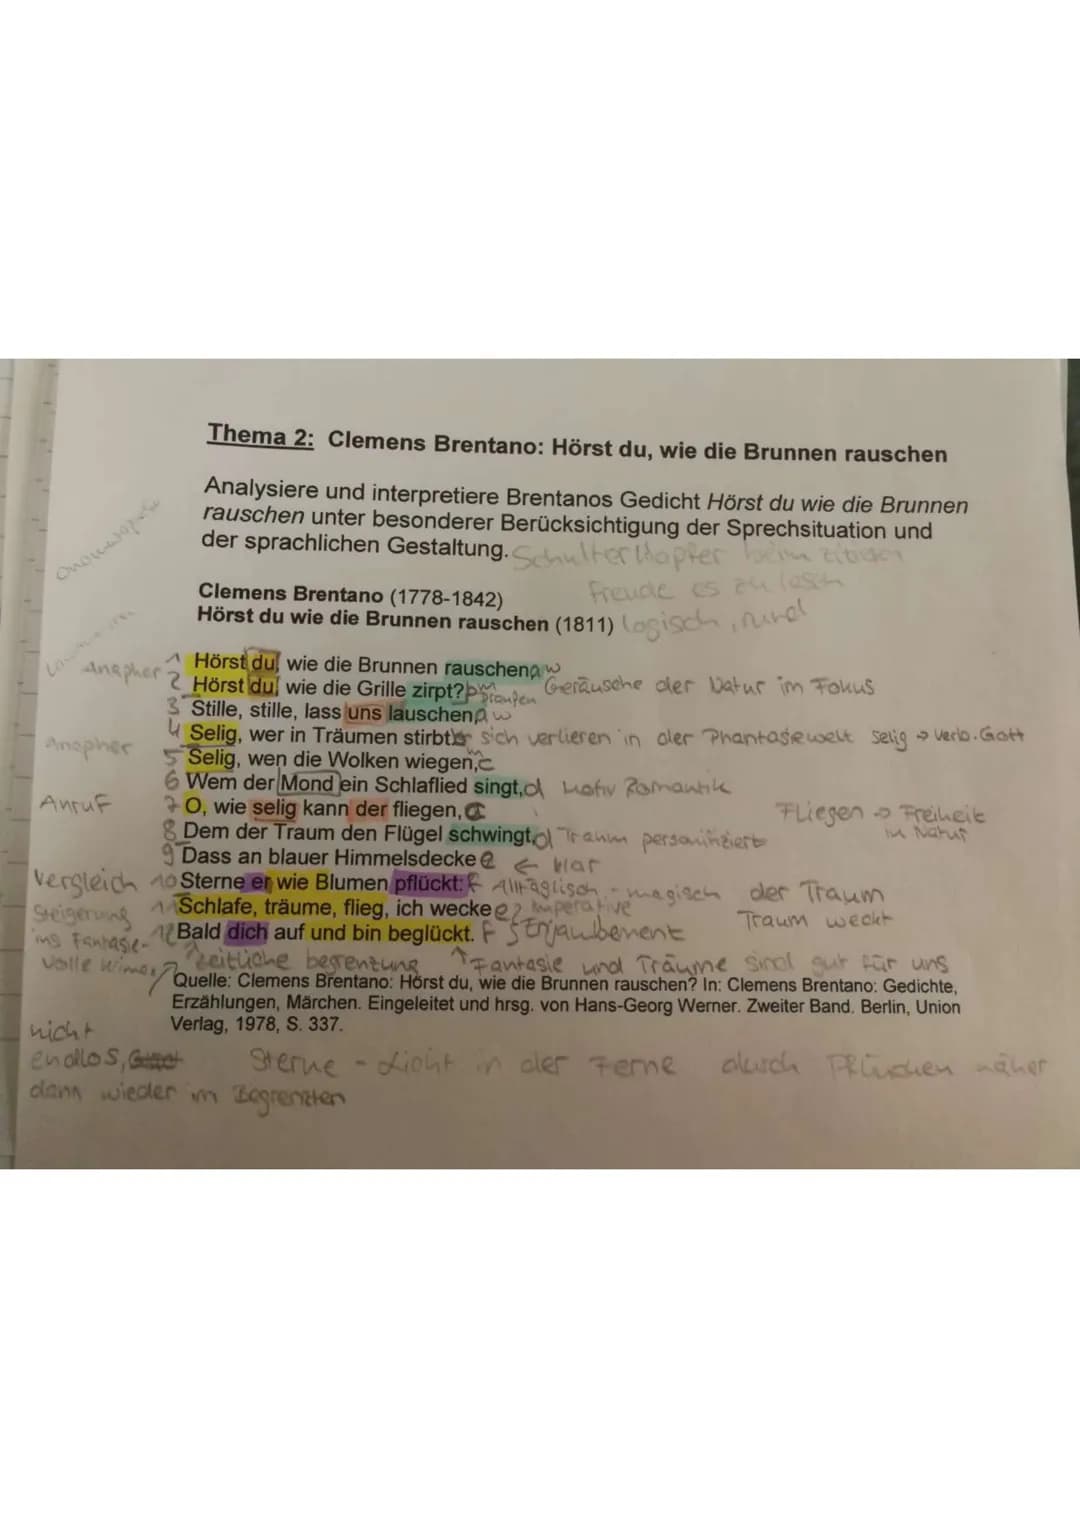 Thema 2: Clemens Brentano: Hörst du, wie die Brunnen rauschen
Analysiere und interpretiere Brentanos Gedicht Hörst du wie die Brunnen
rauschen unter besonderer Berücksichtigung der Sprechsituation und
der sprachlichen Gestaltung. Schulterklopfer beim
Freude es zu lesen
Clemens Brentano (1778-1842)
Hörst du wie die Brunnen rauschen (1811) logisch, rund
Anapher 1 Hörst du, wie die Brunnen rauschen, a w
2 Hörst du, wie die Grille zirpt? b m Geräusche der Natur im Fokus
3 Stille, stille, lass uns lauschen, a w
Anapher 4 Selig, wer in Träumen stirbt. b sich verlieren in der Phantasiewelt selig → verb. Gott
5 Selig, wen die Wolken wiegen, c
6 Wem der Mond ein Schlaflied singt, d Motiv Romantik
Anruf 7 O, wie selig kann der fliegen, c Fliegen → Freiheit
in Natur
8 Dem der Traum den Flügel schwingt, d Traum personifiziert
9 Dass an blauer Himmelsdecke e ← klar
Vergleich 10 Sterne er wie Blumen pflückt: f Alltäglisch - magisch der Traum
Steigerung 11 Schlafe, träume, flieg, ich wecke e Imperative Traum weckt
ins Fantasie- 12 Bald dich auf und bin beglückt. f Enjambement
volle zeitliche begrenzung ↑ Fantasie und Träume sind gut für uns
Quelle: Clemens Brentano: Hörst du, wie die Brunnen rauschen? In: Clemens Brentano: Gedichte,
Erzählungen, Märchen. Eingeleitet und hrsg. von Hans-Georg Werner. Zweiter Band. Berlin, Union
Verlag, 1978, S. 337.
nicht
endlos, Sterne - Licht in der Ferne durch Pflücken näher
dann wieder im Begrenzten